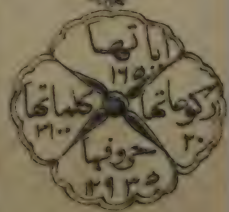 اياتها
١٦٥
ركوعاتها
٢٠
كلماتها
٣١٠٠
حروفها
١٢٩٣٥